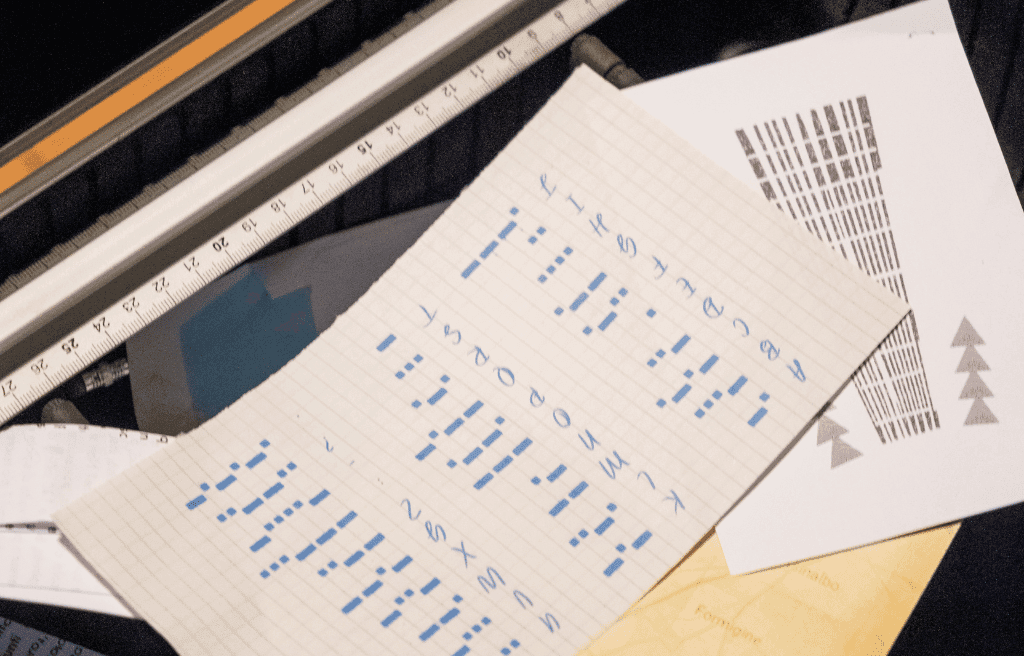 8 9 10 11 12 13 14 15 16 17 18 19 20 21 22 23 24 25 26 27
A B C D E F G H I J
K L M N O P Q R S T
U V W X Y Z . ?
Formigine